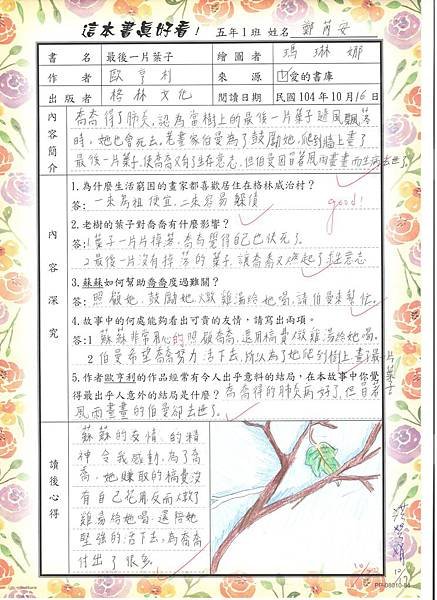 這本書真好看！ 五年1班 姓名 鄭芮安
書名 最後一片葉子 繪圖者 瑪琳娜
作者 歐亨利 來源 山愛的書庫
出版者 格林文化 閱讀日期 民國104年10月16日
內容簡介
喬喬得了肺炎，認為當樹上的最後一片葉子隨風飄落
時，她也會死去。老畫家伯曼為了鼓勵她，爬到牆上畫了
最後一片葉子，使喬喬又有了生存意志，但伯曼因冒著風雨畫畫而生病去世了。
內容深究
1.為什麼生活窮困的畫家都喜歡居住在格林威治村？
答：一來為租便宜，二來容易躲債
good!
2.老樹的葉子對喬喬有什麼影響？
答：1葉子一片片掉落，喬喬覺得自己也快死了。
2最後一片沒有掉落的葉子，讓喬喬又燃起了生存意志
3.蘇蘇如何幫助喬喬度過難關？
答：照顧她，鼓勵她，煮雞湯給她喝，請伯曼來幫忙。
4.故事中的何處能夠看出可貴的友情，請寫出兩項。
答：1 蘇蘇非常用心的照顧喬喬，還用稿費煮雞湯給她喝。
2 伯曼希望喬喬努力活下去，所以為了她爬到牆上畫了最後一片葉子
5.作者歐亨利的作品經常有令人出乎意料的結局，在本故事中你覺
得最出乎人意外的結局是什麼？喬喬得的肺炎病好了，但冒著
風雨畫畫的伯曼卻去世了。
讀後心得
蘇蘇的友情的精
神令我感動，為了喬
喬，她賺取的稿費沒
有自己花用反而煮了
雞湯給她喝，還陪她
堅強的活下去，為喬喬
付出了很多。
PP-08010-84